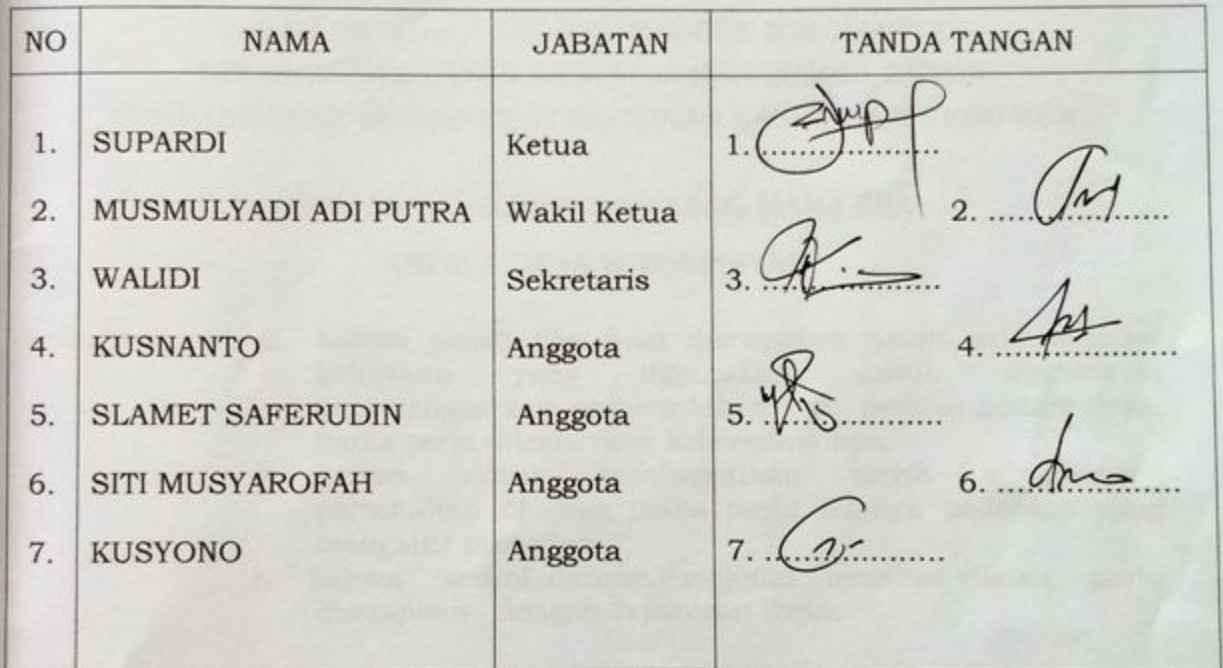 NO NAMA JABATAN TANDA TANGAN
1. SUPARDI Ketua 1. ....................
2. MUSMULYADI ADI PUTRA Wakil Ketua 2. ....................
3. WALIDI Sekretaris 3. ....................
4. KUSNANTO Anggota 4. ....................
5. SLAMET SAFERUDIN Anggota 5. ....................
6. SITI MUSYAROFAH Anggota 6. ....................
7. KUSYONO Anggota 7. ....................